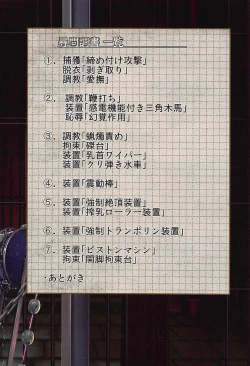 ①．捕獲「締め付け攻撃」
脱衣「剥ぎ取り」
調教「愛撫」
②．調教「鞭打ち」
装置「感電機能付き三角木馬」
恥辱「幻覚作用」
③．調教「蝋燭責め」
拘束「磔台」
装置「乳首ワイパー」
装置「クリ弾き水車」
④．装置「震動棒」
⑤．装置「強制絶頂装置」
装置「搾乳ローラー装置」
⑥．装置「強制トランポリン装置」
⑦．装置「ピストンマシン」
拘束「開脚拘束台」
・あとがき